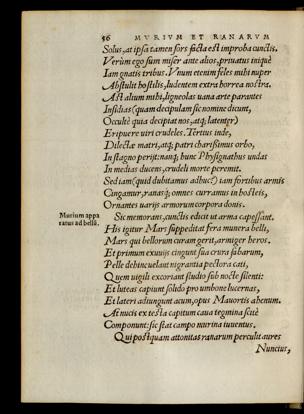 56 MVRIVM ET RANARVM
Solus, at ipsa tamen sors facta est improba cunctis.
Verùm ego sum miser ante alios, priuatus iniquè
Iam gnatis tribus. Vnum etenim feles mihi nuper
Abstulit hostilis, ludentem extra horrea nostra.
Ast alium mihi, ligneolas uana arte parantes
Insidias (quam decipulam sic nomine dicunt,
Occultè quia decipiat nos, atq; latenter)
Eripuere uiri crudeles. Tertius inde,
Dilectæ matri, atq; patri charissimus orbo,
In stagno perijt: nanq; hunc Physignathus undas
In medias ducens, crudeli morte peremit.
Sed iam (quid dubitamus adhuc?) iam fortibus armis
Cingamur, ranasq; omnes curramus in hosteis,
Ornantes uarijs armorum corpora donis.
Murium appa
ratus ad bellū.
Sic memorans, cunctis edicit ut arma capessant.
His igitur Mars suppeditat fera munera belli,
Mars qui bellorum curam gerit, armiger heros.
Et primum exuuijs cingunt sua crura fabarum,
Pelle dehinc uelant nigrantia pectora cati,
Quem uigili excoriant studio sub nocte silenti:
Et luteas capiunt solido pro umbone lucernas,
Et lateri adiungunt acum, opus Mauortis ahenum.
At nucis ex testa capitum caua tegmina scitè
Componunt: sic stat campo murina iuuentus.
Qui postquam attonitas ranarum perculit aures
Nuncius,